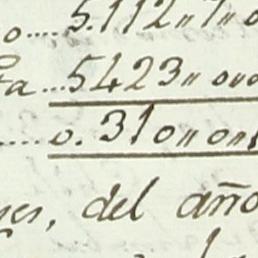 o..... 5.112 n 7 n o
ta... 5423 n o n o
..... o. 310 n o n
es, del año